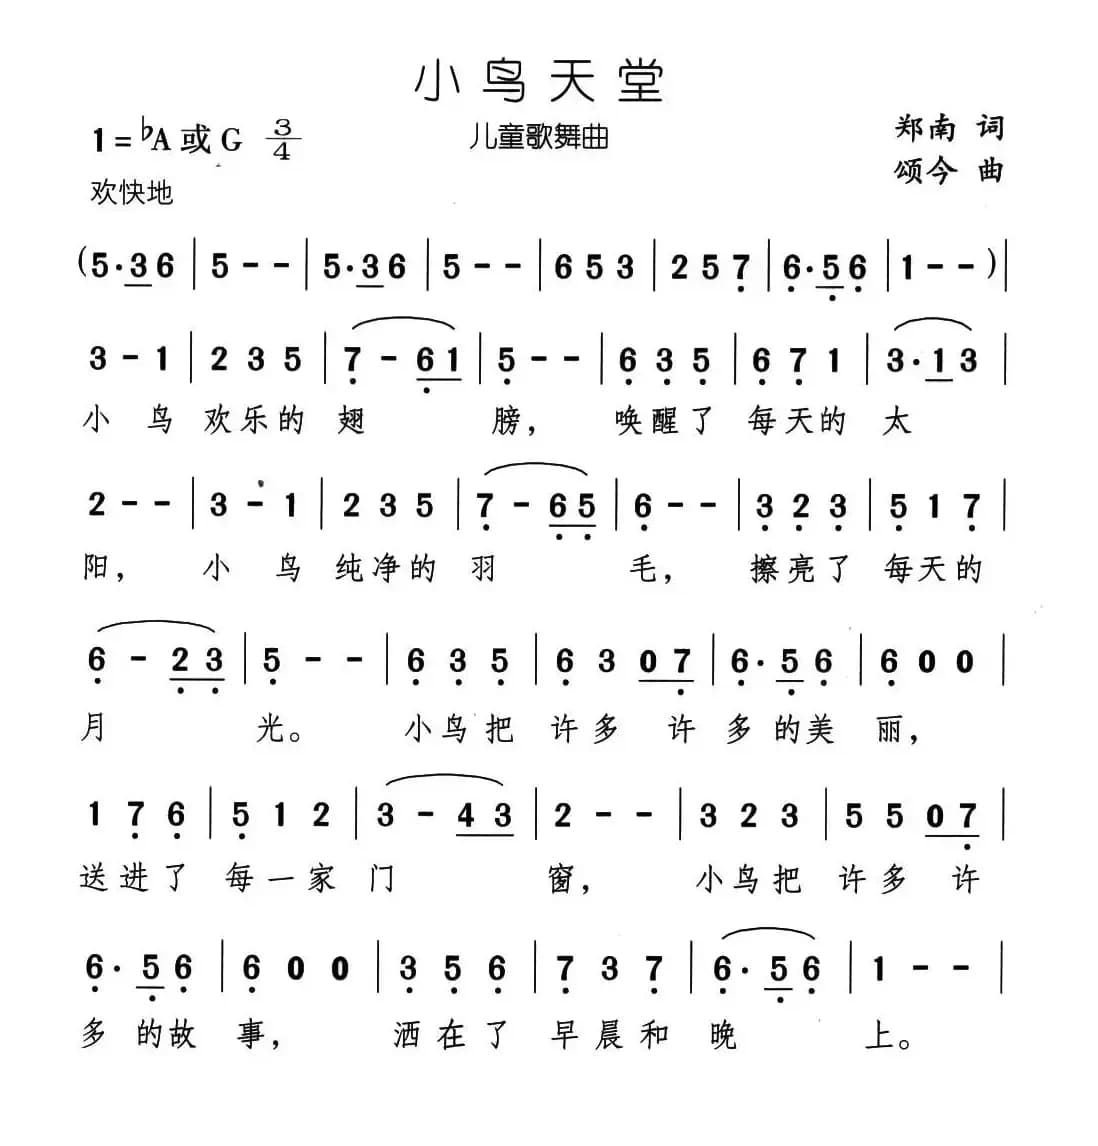 小鸟天堂
1=♭A或G 3/4 儿童歌舞曲 郑南 词
欢快地 颂今 曲
(5·36 | 5-- | 5·36 | 5-- | 653 | 257̣ | 6̣·5̣6̣ | 1--)|
3-1 | 235 | 7̣-6̣1 | 5̣-- | 6̣3̣5̣ | 6̣7̣1 | 3·13 |
小 鸟 欢乐的 翅 膀， 唤醒了 每天的 太
2-- | 3-1 | 235 | 7̣-6̣5̣ | 6̣-- | 3̣2̣3̣ | 5̣17̣ |
阳， 小 鸟 纯净的 羽 毛， 擦亮了 每天的
6̣-2̣3̣ | 5̣-- | 6̣3̣5̣ | 6̣307̣ | 6̣·5̣6̣ | 6̣00 |
月 光。 小鸟把 许多 许 多的美 丽，
17̣6̣ | 5̣12 | 3-43 | 2-- | 323 | 5507̣ |
送进了 每一家 门 窗， 小鸟把 许多 许
6̣·5̣6̣ | 6̣00 | 3̣5̣6̣ | 7̣37̣ | 6̣·5̣6̣ | 1-- |
多 的故 事， 洒在了 早晨和 晚 上。